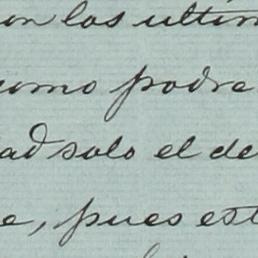 on los ultim
como podra
ad solo el de
e, pues est